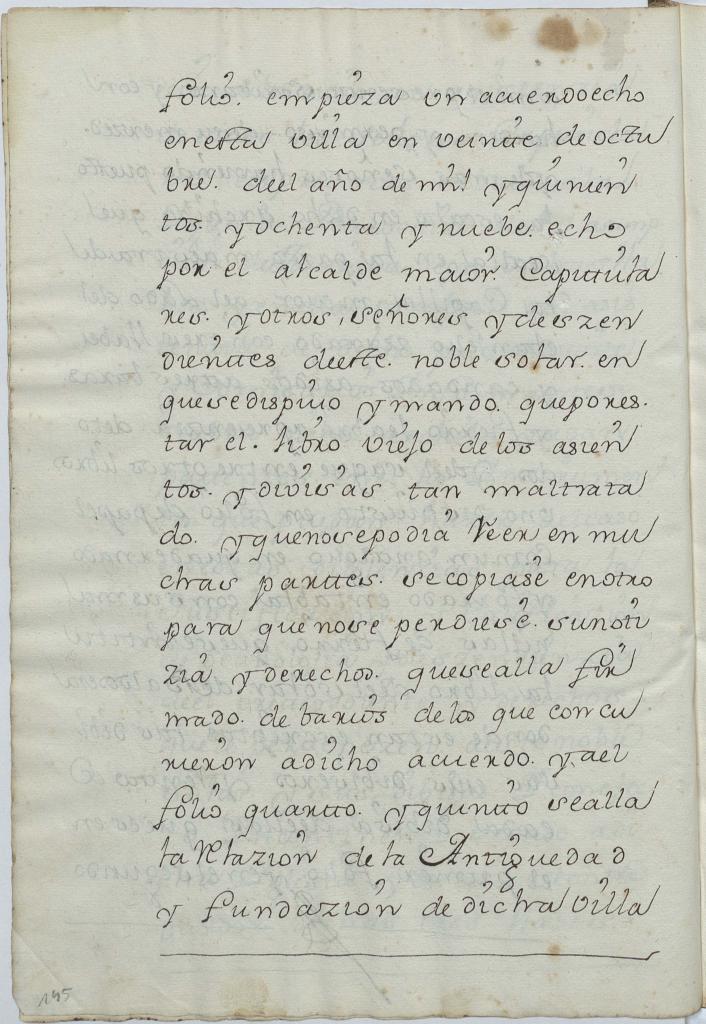 folio. empieza un acuerdo echo
en esta villa en veintte de octu
bre. deel año de mil y quinien
tos. y ochenta y nuebe. echo
por el alcalde maior. Capitula
res. y otros, señores y deszen
dienttes deeste. noble solar. en
que se dispuso y mando. que por es.
tar el. libro viejo de los asien
tos. y divisas tan maltrata
do. y que no se podia leer en mu
chas parttes. se copiase en otro
para que no se perdiese. su noti
zia y derechos. que se alla fir
mado. de barios de los que concu
rieron a dicho acuerdo. y a el
folio quartto. y quintto se alla
la Relazion de la Antiguedad
y fundazion de dicha villa
145